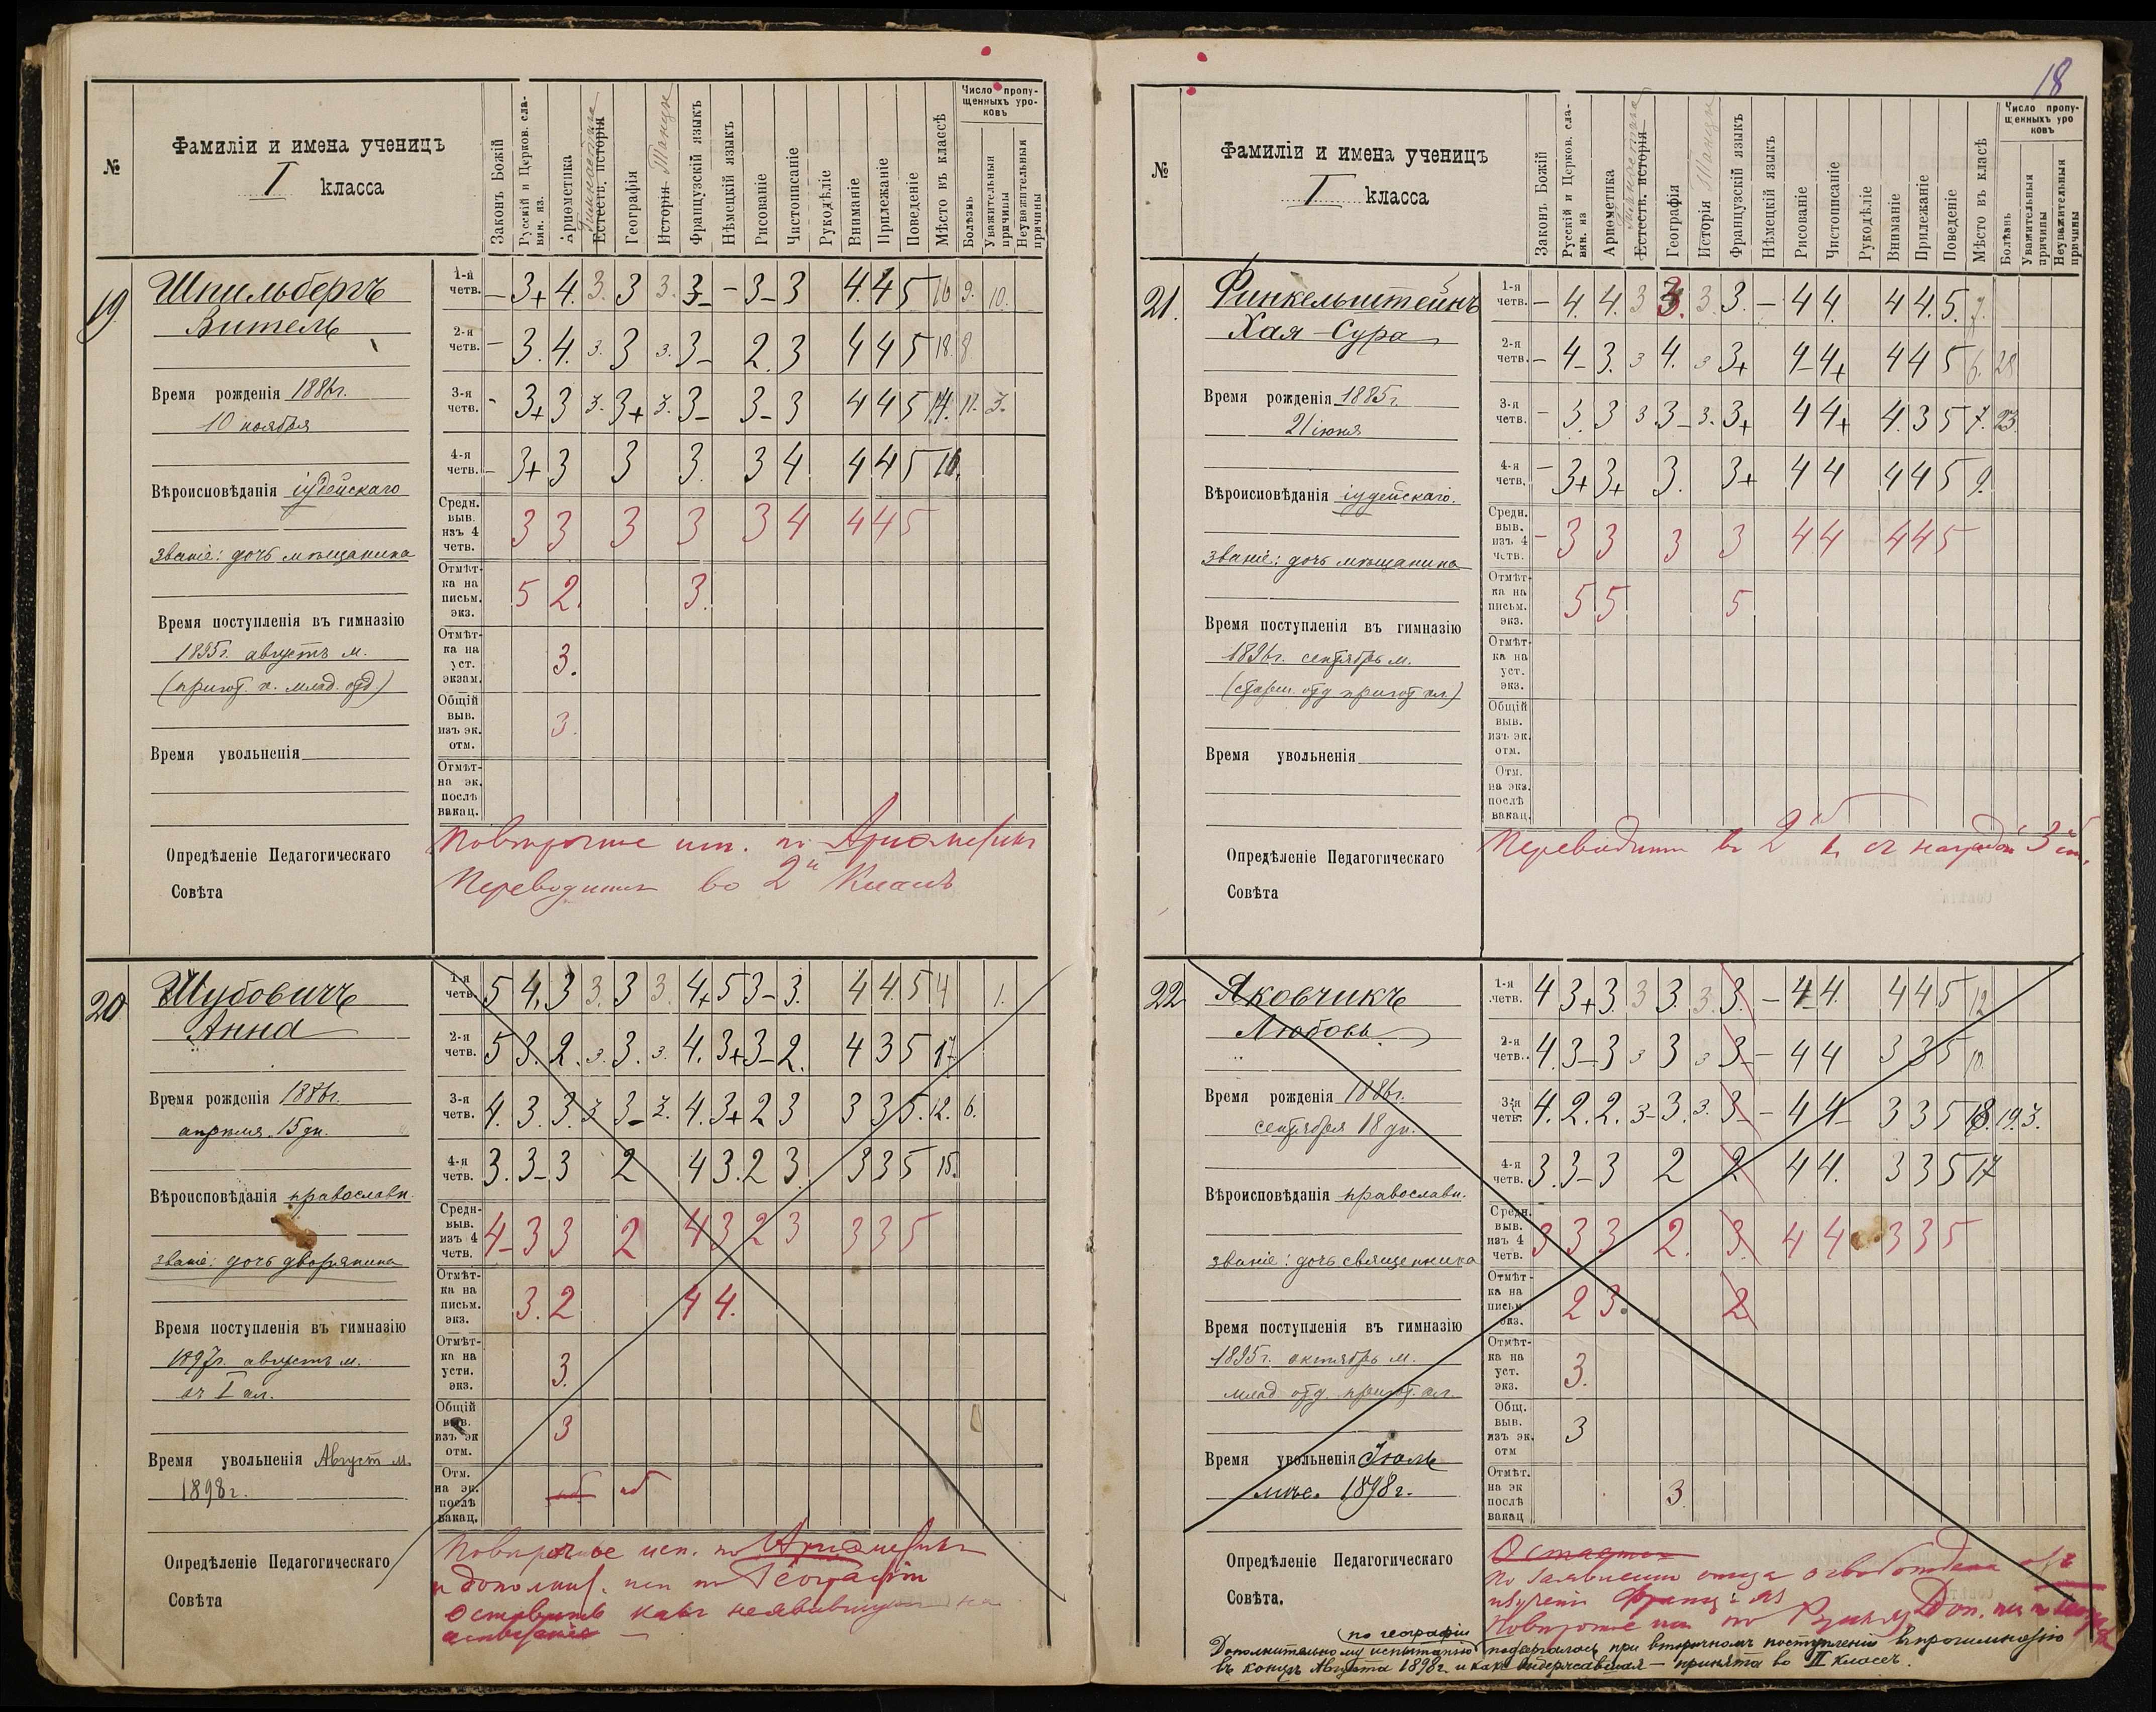 №
Фамиліи и имена ученицъ
I класса
Законъ Божій
Русскій и Церков. сла-
вян. яз.
Ариѳметика
Гимнастика
Естеств. исторія
Географія
Исторія Танцы
Французскій языкъ
Нѣмецкій языкъ
Рисованіе
Чистописаніе
Рукодѣліе
Вниманіе
Прилежаніе
Поведеніе
Мѣсто въ классѣ
Число пропу-
щенныхъ уро-
ковъ
Болѣзнь
Уважительныя
причины
Неуважительныя
причины
19
Шпильбергъ
Витель
Время рожденія 1886г.
10 ноября
Вѣроисповѣданія іудейскаго
Званіе: дочь мѣщанина
Время поступленія въ гимназію
1895г. августъ м.
(пригот. к. млад. отд)
Время увольненія
1-я
четв. — 3+ 4. 3. 3 3. 3- — 3- 3 4. 4 5 10 9. 10.
2-я
четв. — 3. 4. 3. 3 3. 3- 2. 3 4 4 5 18. 8.
3-я
четв. - 3+ 3 3. 3+ 3. 3- 3- 3 4 4 5 14. 11. 3.
4-я
четв. — 3+ 3 3 3. 3 4 4 4 5 10.
Средн.
выв.
изъ 4
четв. 3 3 3 3 3 4 4 4 5
Отмѣт-
ка на
письм.
экз. 5 2. 3.
Отмѣт-
ка на
уст.
экзам. 3.
Общій
выв.
изъ эк.
отм. 3.
Отмѣт-
на эк.
послѣ
вакац.
Опредѣленіе Педагогическаго
Совѣта
Повторочное исп. по Ариѳметикѣ
Переводится во 2й Классъ
20
Шубовичъ
Анна
Время рожденія 1886г.
апрѣля 15 дн.
Вѣроисповѣданія православн.
Званіе: дочь дворянина
Время поступленія въ гимназію
1897г. августъ м.
въ I кл.
Время увольненія Август м.
1898г.
1-я
четв. 5 4. 3 3. 3 3. 4+ 5 3- 3. 4 4. 5 4 1.
2-я
четв. 5 3. 2. 3. 3. 3. 4. 3+ 3- 2. 4 3 5 17.
3-я
четв. 4. 3. 3. 3. 3- 3. 4. 3+ 2 3 3 3 5. 12. 6.
4-я
четв. 3. 3- 3 2 4 3. 2 3. 3 3 5 15.
Средн-
выв.
изъ 4
четв. 4- 3 3 2 4 3 2 3 3 3 5
Отмѣт-
ка на
письм.
экз. 3. 2 4 4.
Отмѣт-
ка на
устн.
экз. 3.
Общій
выв.
изъ эк
отм. 3
Отм.
на эк.
послѣ
вакац. нб нб
Опредѣленіе Педагогическаго
Совѣта
Повторочное исп. по Ариѳметикѣ
и дополнит. исп по Географіи
Оставить какъ неявившуюся на
18
№
Фамиліи и имена ученицъ
I класса
Законъ Божій
Русскій и Церков. сла-
вян. яз
Ариѳметика
Гимнастика
Естеств. исторія
Географія
Исторія Танцы
Французскій языкъ
Нѣмецкій языкъ
Рисованіе
Чистописаніе
Рукодѣліе
Вниманіе
Прилежаніе
Поведеніе
Мѣсто въ класѣ
Число пропу-
щенныхъ уро
ковъ
Болѣзнь
Уважительныя
причины
Неуважительныя
причины
21.
Финкельштейнъ
Хая-Сура
Время рожденія 1885г.
21 іюня
Вѣроисповѣданія іудейскаго.
Званіе: дочь мѣщанина
Время поступленія въ гимназію
1896г. сентябрь м.
(старш. отд пригот кл.)
Время увольненія
1-я
четв. — 4. 4. 3 3. 3 3. — 4 4. 4 4. 5. 7.
2-я
четв. — 4- 3. 3 4. 3 3+ 4- 4+ 4 4 5 6. 28
3-я
четв. — 3. 3 3 3- 3. 3+ 4 4+ 4. 3 5 7. 23.
4-я
четв. — 3+ 3+ 3. 3+ 4 4 4 4 5 9.
Средн.
выв.
изъ 4
четв. — 3 3 3 3 4 4 4 4 5
Отмѣт-
ка на
письм.
экз. 5 5 5
Отмѣт-
ка на
уст.
экз.
Общій
выв.
изъ эк.
отм.
Отм.
на экз.
послѣ
вакац.
Опредѣленіе Педагогическаго
Совѣта
Переводится во 2й к. съ наградой 3 ст.
22
Яковчикъ
Любовь
Время рожденія 1886г.
сентября 18 дн.
Вѣроисповѣданія православн.
Званіе: дочь священника
Время поступленія въ гимназію
1895г. октябрь м.
млад отд. пригот. кл.
Время увольненія Іюль
мѣс. 1898г.
1-я
четв. 4 3+ 3. 3 3. 3. 3. — 4 4. 4 4 5 12
2-я
четв. 4. 3- 3 3 3 3 3- — 4 4 3 3 5 10.
3-я
четв. 4. 2. 2. 3- 3. 3. 3- — 4 4- 3 3 5 18. 19. 3.
4-я
четв. 3. 3- 3 2 2 4 4. 3 3 5 17
Средн.
выв.
изъ 4
четв. 3 3 3. 2. 3. 4 4 3 3 5
Отмѣт-
ка на
письм
экз. 2 3. 2
Отмѣт-
ка на
уст.
экз. 3.
Общ.
выв.
изъ эк.
отм 3
Отмѣт.
на эк
послѣ
вакац 3.
Опредѣленіе Педагогическаго
Совѣта.
Остается
по заявленію отца освобождена отъ
изученія Франц. яз
Повторочное исп по Русск яз Доп. исп по Географіи
по географіи
Дополнительному испытанію подвергалась при вторичномъ поступленіи въ прогимназію
въ концѣ Августа 1898г. и какъ выдержавшая — принята во II классъ.